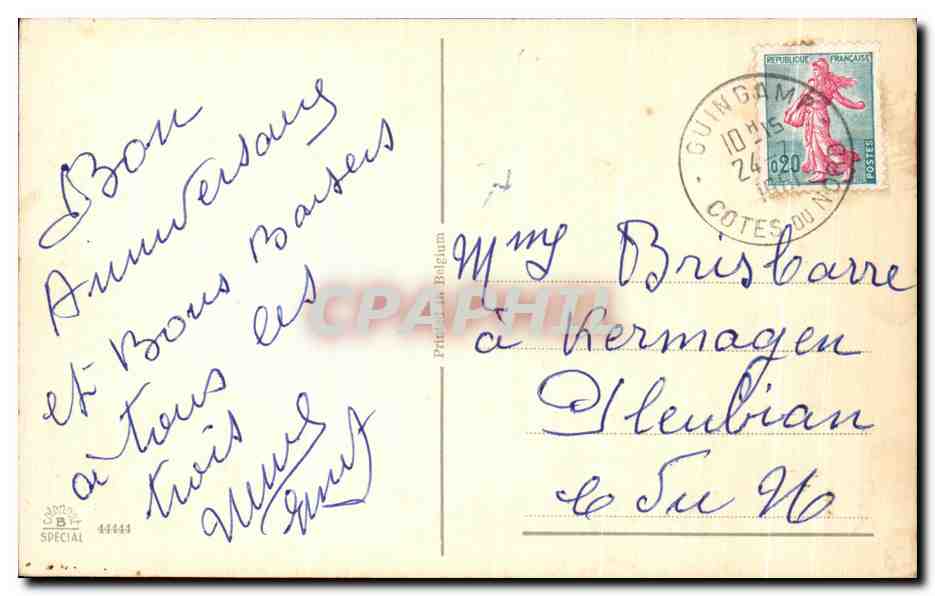 Bon
Anniversaire
et Bons Baisers
à tous les
trois
Printed in Belgium
CPAPHIL
REPUBLIQUE FRANÇAISE
POSTES
0,20
GUINGAMP
10H15
24
COTES DU NORD
Mme Brisbarre
à Kermagen
Pleubian
C du N
B
SPECIAL
44444